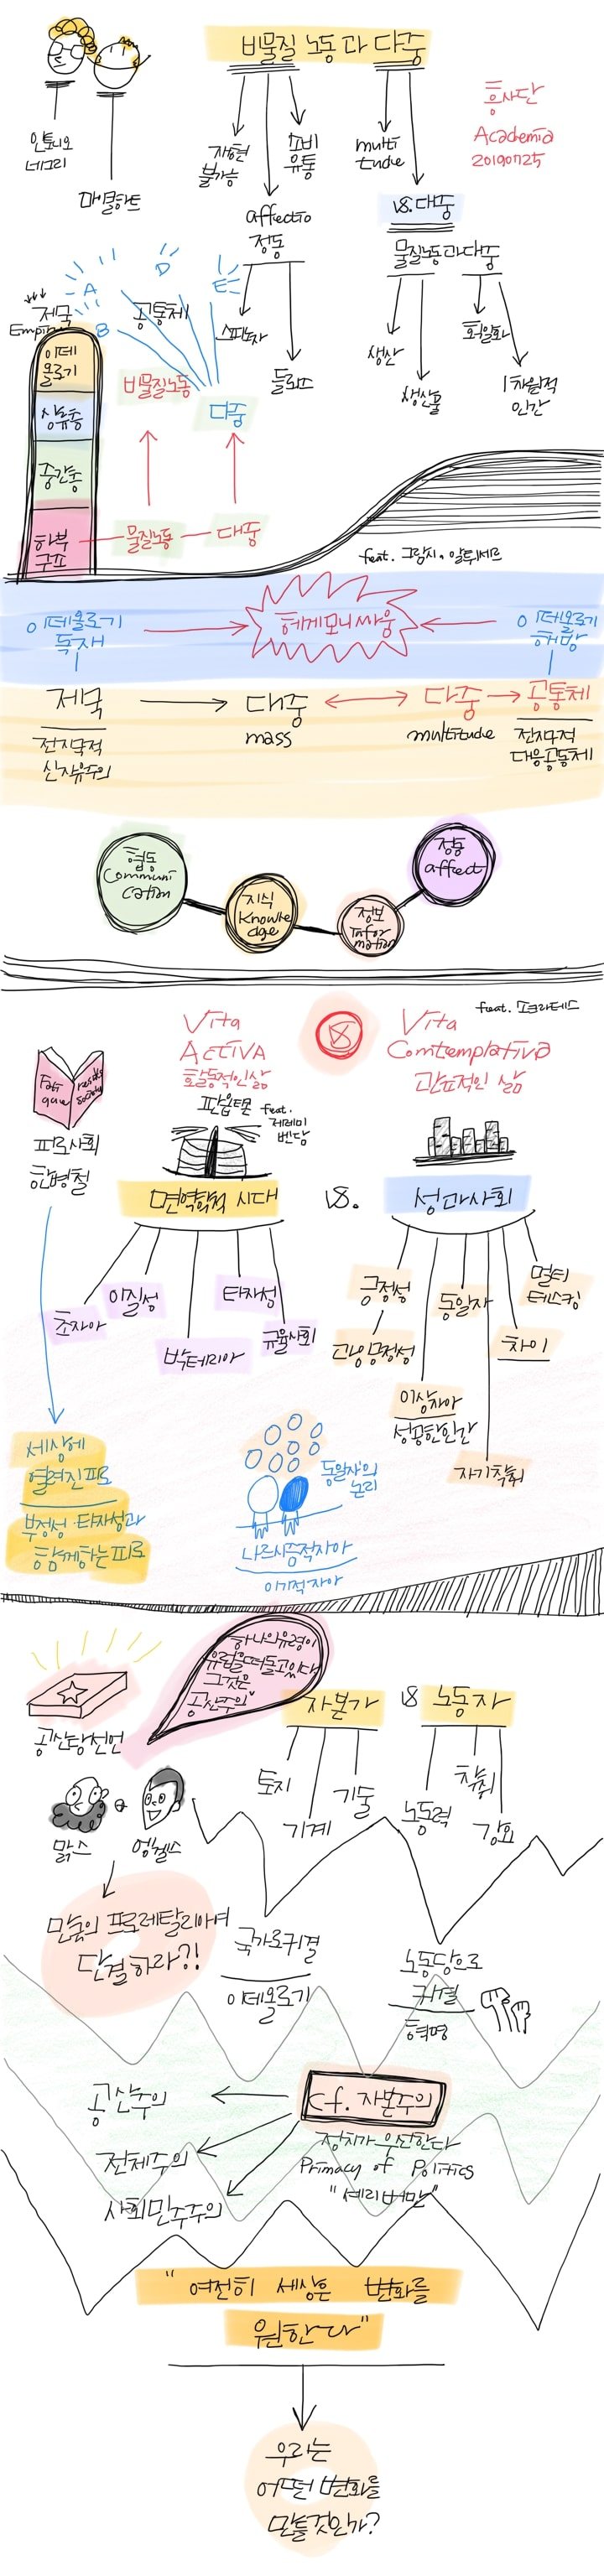 비물질 노동과 다중
안토니오
네그리
마이클하트
재현
불가능
affectio
정동
소비
유통
multi
tude
흥사단
Academia
20190725
vs. 대중
물질노동과대중
스피노자
들뢰즈
생산
생산물
획일화
1차원적
인간
제국
Empire
이데
올로기
상류층
중간층
하부
구조
A
B
D
E
공통체
비물질노동
다중
물질노동
대중
feat. 그람시, 알튀세르
이데올로기
독재
헤게모니싸움
이데올로기
해방
제국
대중
mass
다중
multitude
공통체
전지구적
신자유주의
전지구적
대응공동체
협동
Communi
cation
지식
Knowle
dge
정보
Infor
mation
정동
affect
feat. 소크라테스
Vita
ACTIVA
활동적인삶
VS
Vita
Comtemplativa
관조적인 삶
Fati
gue
society
피로사회
한병철
판옵티콘
feat.
제레미
벤담
면역학적 시대
vs.
성과사회
초자아
이질성
박테리아
타자성
규율사회
긍정성
과잉긍정성
이상자아
성공한인간
동일자
자기착취
차이
멀티
태스킹
세상에
열려진피로
부정성·타자성과
함께하는피로
동일자의
논리
나르시즘적자아
이기적 자아
하나의유령이
유럽을떠돌고있다
그것은
공산주의"
공산당선언
맑스
엥겔스
자본가
vs
노동자
토지
기계
기술
노동력
착취
강요
만국의 프로레탈리아여
단결하라?!
국가로귀결
이데올로기
노동당으로
귀결
혁명
공산주의
전체주의
사회민주주의
cf. 자본주의
정치가 우선한다
Primacy of Politics
"셰리버먼"
"여전히 세상은 변화를
원한다"
우리는
어떤 변화를
만들것인가?